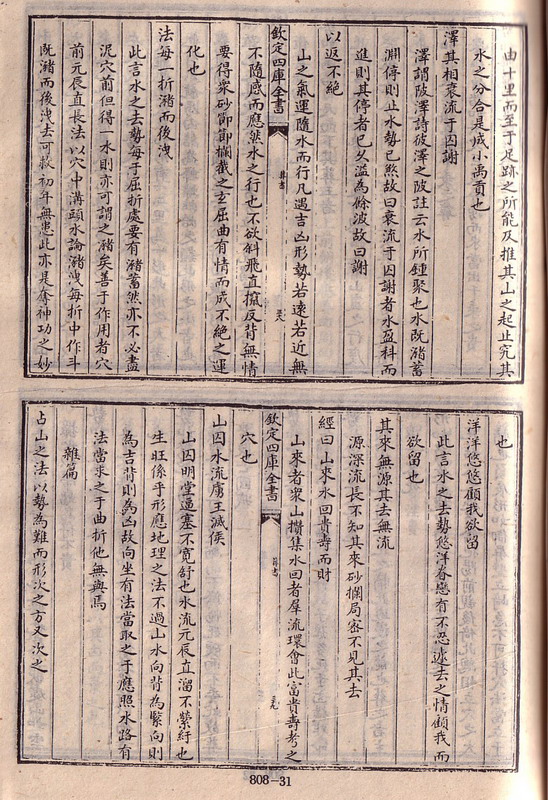 由十里而至于足跡之所能及推其山之起止究其
水之分合是成小禹貢也
澤其相衰流于囚謝
澤謂陂澤詩彼澤之陂註云水所鍾聚也水既瀦蓄
淵停則止水勢已煞故曰衰流于囚謝者水盈科而
進則其停者已久溢為餘波故曰謝
以返不絶
山之氣運隨水而行凡遇吉凶形勢若遠若近無
欽定四庫全書
葬書
不隨感而應然水之行也不欲斜飛直撞反背無情
要得衆砂節節攔截之玄屈曲有情而成不絶之運
化也
法每一折瀦而後洩
此言水之去勢每于屈折處要有瀦蓄然亦不必盡
泥穴前但得一水則亦可謂之瀦矣善于作用者穴
前元辰直長法以穴中溝頭水論瀦洩每折中作斗
既瀦而後洩去可救初年無患此亦是奪神功之妙
也
洋洋悠悠顧我欲留
此言水之去勢悠洋眷戀有不忍遽去之情顧我而
欲留也
其來無源其去無流
源深流長不知其來砂攔局密不見其去
經曰山來水回貴壽而財
山來者衆山攅集水回者羣流環會此富貴壽考之
欽定四庫全書
葬書
穴也
山囚水流虜王滅侯
山囚明堂逼塞不寛舒也水流元辰直溜不縈紆也
生旺係乎形應地理之法不過山水向背為緊向則
為吉背則為凶故向坐有法當取之于應照水路有
法當求之于曲折他無與焉
雜篇
占山之法以勢為難而形次之方又次之
808-31